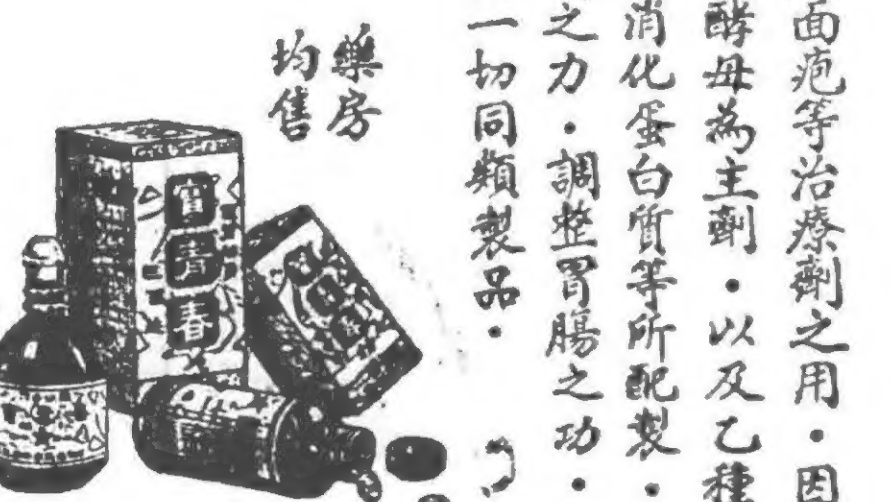 面疱等治療劑之用・因
酵母為主劑・以及乙種
消化蛋白質等所配製・
之力・調整胃腸之功・
一切同類製品・
藥房
均售
寶青春